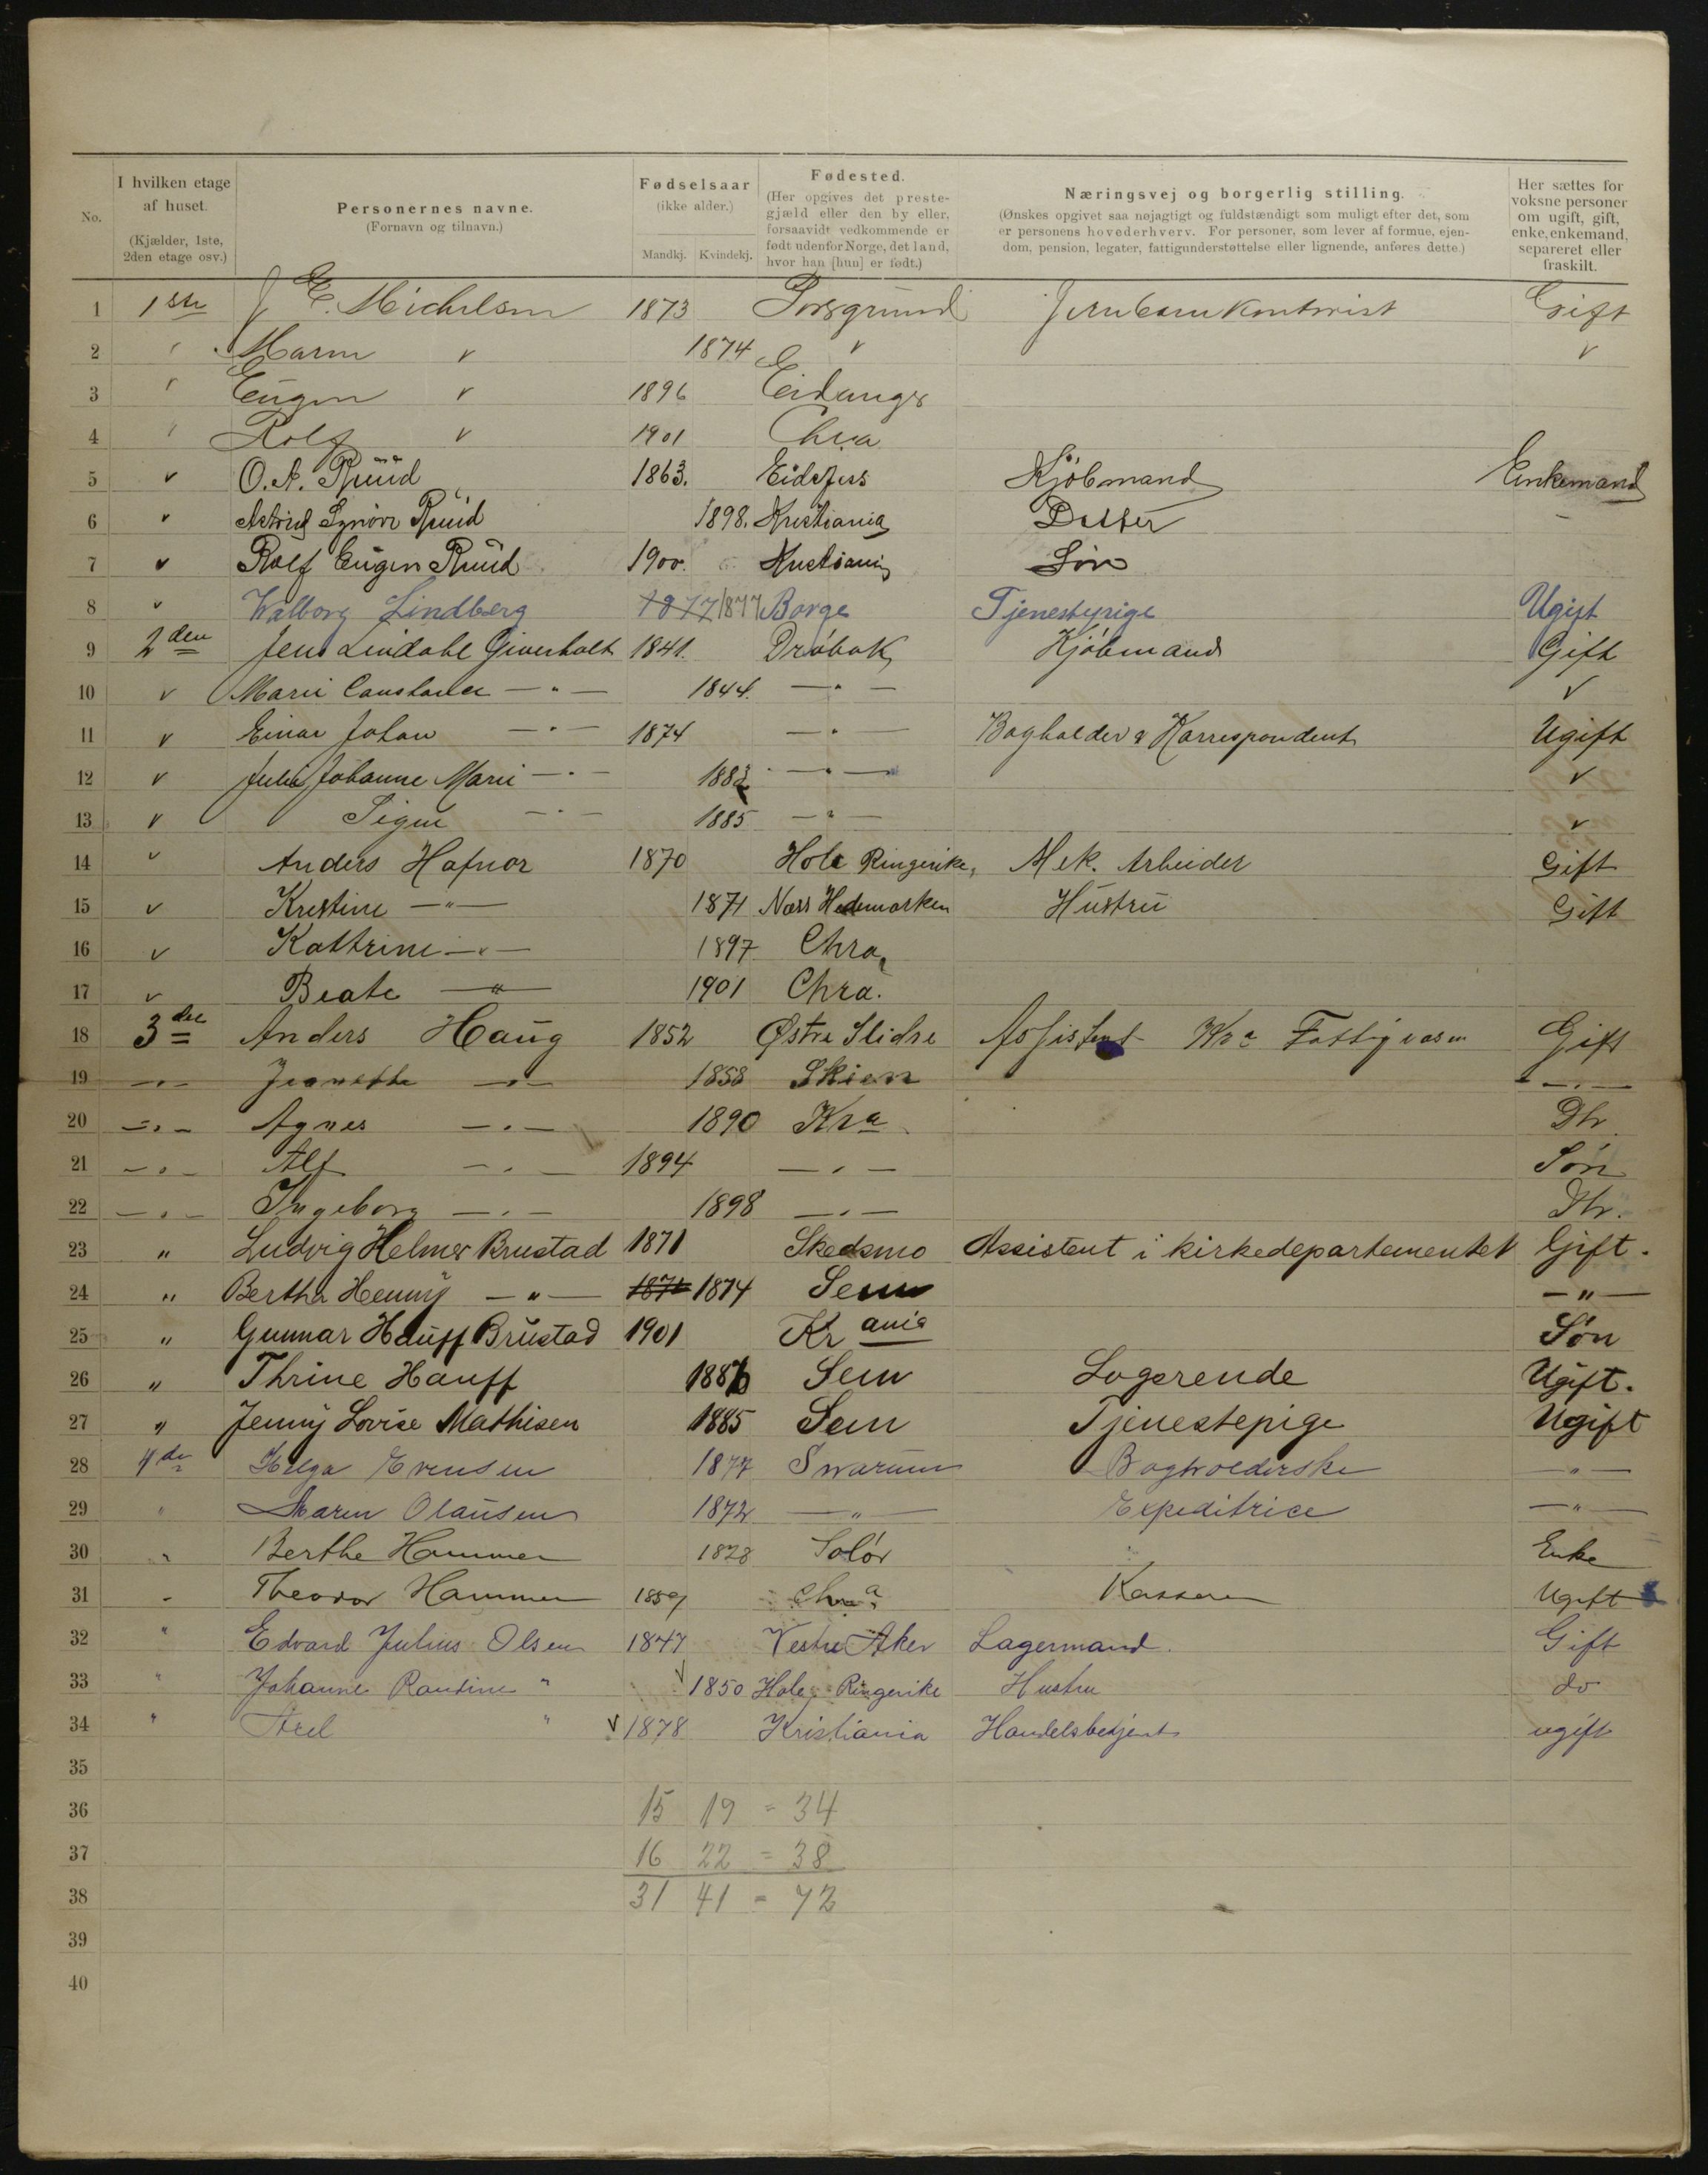 No.
I hvilken etage af huset.
(Kjælder, 1ste, 2den etage osv.)
Personernes navne.
(Fornavn og tilnavn.)
Fødselsaar
(ikke alder.)
Mandkj. Kvindekj.
Fødested.
(Her opgives det preste-
gjæld eller den by eller,
forsaavidt vedkommende er
født udenfor Norge, det land,
hvor han [hun] er født.)
Næringsvej og borgerlig stilling.
(Ønskes opgivet saa nøjagtigt og fuldstændigt som muligt efter det, som
er personens hovederhverv. For personer, som lever af formue, ejen-
dom, pension, legater, fattigunderstøttelse eller lignende, anføres dette.)
Her sættes for
voksne personer
om ugift, gift,
enke, enkemand,
separeret eller
fraskilt.
1 1ste J E. Michelsen 1873 Porsgrund Gift
2 " Maren " 1874 " "
3 " Eugen " 1896 Eidanger
4 " Rolf " 1901 Chria
5 " O. A. Ruud 1863. Eidsfoss Kjøbmand Enkemand
6 " Astrid Synøve Ruud 1898. Kristiania Datter
7 " Rolf Eugen Ruud 1900. Kristiania Søn
8 " Walborg Lindberg 1877 1877 Borge Tjenestepige Ugift
9 2den Jens Lindahl Giverholt 1841. Drøbak Kjøbmand Gift
10 " Marie Constance — " — 1844. — " — "
11 " Einar Johan — " — 1874 — " — Bogholder & Korrespondent Ugift
12 " Julie Johanne Marie — " — — " — "
13 " Signe — " — 1885 — " — "
14 " Anders Hafnor 1870 Hole Ringerike, Mek. Arbeider Gift
15 " Kristine — " — 1871 Næss Hedemarken Hustru Gift
16 " Kathrine — " — 1897 Chra,
17 " Beate — " — 1901 Chra.
18 3die Anders Haug 1852 Østre Slidre Assistent Kra Fattigvæsen Gift
19 — " — Jeanette — " — 1858 Skien — " —
20 — " — Agnes — " — 1890 Kra Dtr.
21 — " — Alf — " — 1894 — " — Søn
22 — " — Ingeborg — " — 1898 — " — Dtr.
23 " Ludvig Helmer Brustad 1871 Skedsmo Assistent i kirkedepartementet Gift.
24 " Bertha Henny — " — 1874 1874 Sem — " —
25 " Gunnar Hauff Brustad 1901 Krania Søn
26 " Thrine Hauff Sem Logerende Ugift.
27 " Jenny Lovise Mathisen 1885 Sem Tjenestepige Ugift
28 4de Helga Evensen 1877 Bogholderske — " —
29 " Maren Olausen 1872 — " — Expeditrice — " —
30 " Berthe Hammer 1828 Solør Enke
31 " Theodor Hammer 1859 Chra. Kasserer Ugift
32 " Edvard Julius Olsen 1847 Vestre Aker Lagermand. Gift
33 " Johanne " 1850 Hole, Ringerike Hustru do
34 " Axel " 1878 Kristiania Handelsbetjent ugift
35
36 15 19 = 34
37 16 22 = 38
38 31 41 = 72
39
40